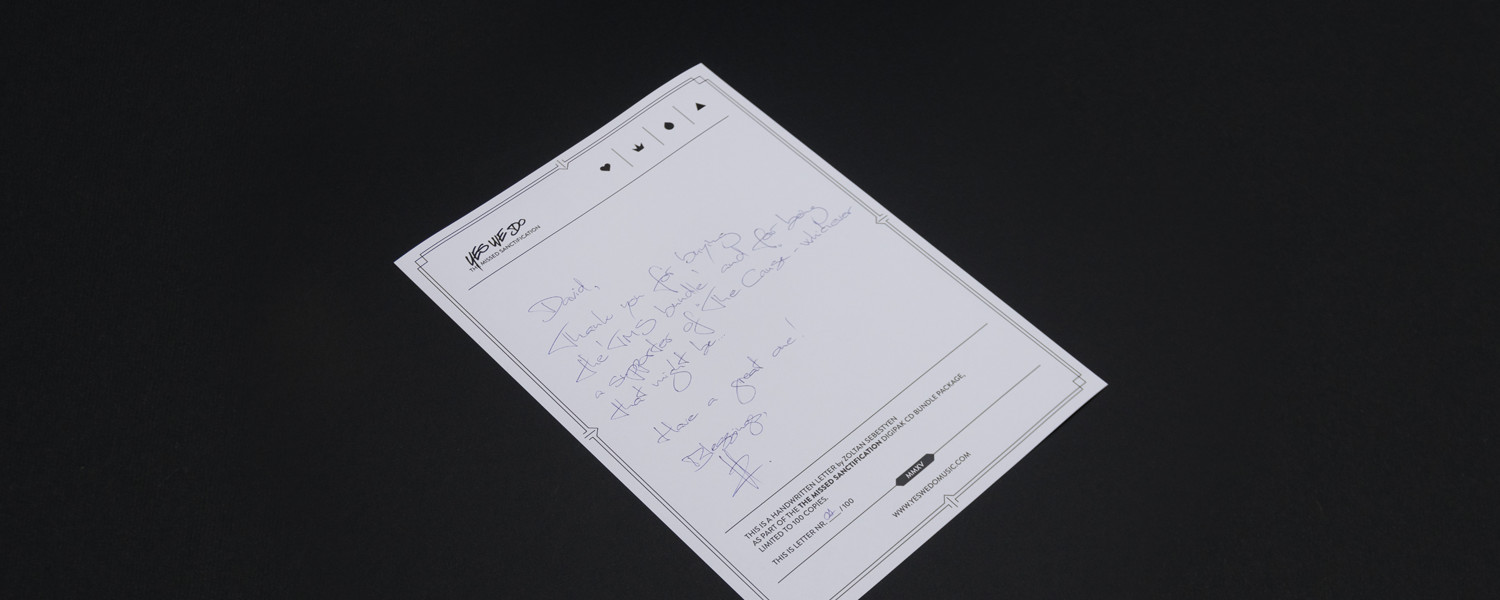 YES WE DO
THE MISSED SANCTIFICATION
David,
Thank you for buying
the TMS bundle! and for being
a supporter of "The Cause - whatever
that might be..
Have a great one!
Blessings,
THIS IS A HANDWRITTEN LETTER by ZOLTAN SEBESTYEN
AS PART OF THE THE MISSED SANCTIFICATION DIGIPAK CD BUNDLE PACKAGE,
LIMITED TO 100 COPIES.
THIS IS LETTER NR. /100
MMXV
WWW.YESWEDOMUSIC.COM